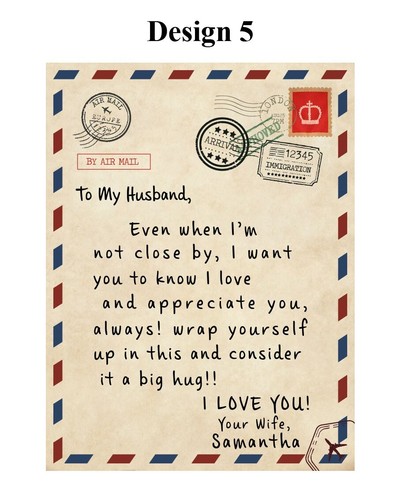 Design 5
AIR MAIL
EUROPE
12345
LONDON
ARRIVAL
12345
IMMIGRATION
BY AIR MAIL
To My Husband,
Even when I'm
not close by, I want
you to know I love
and appreciate you,
always! wrap yourself
up in this and consider
it a big hug!!
I LOVE YOU!
Your Wife,
Samantha